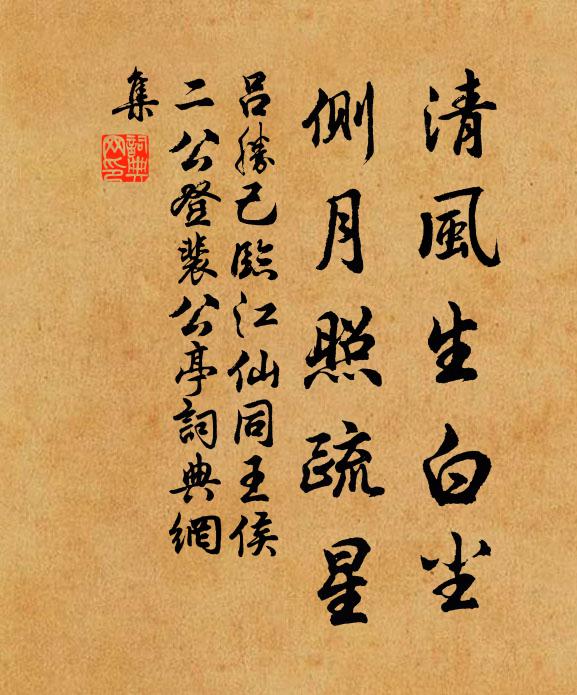 清風生白尘
側月照疏星
呂勝己臨江仙同王侯
二公登裴公亭詞典網
集
詞典
网印